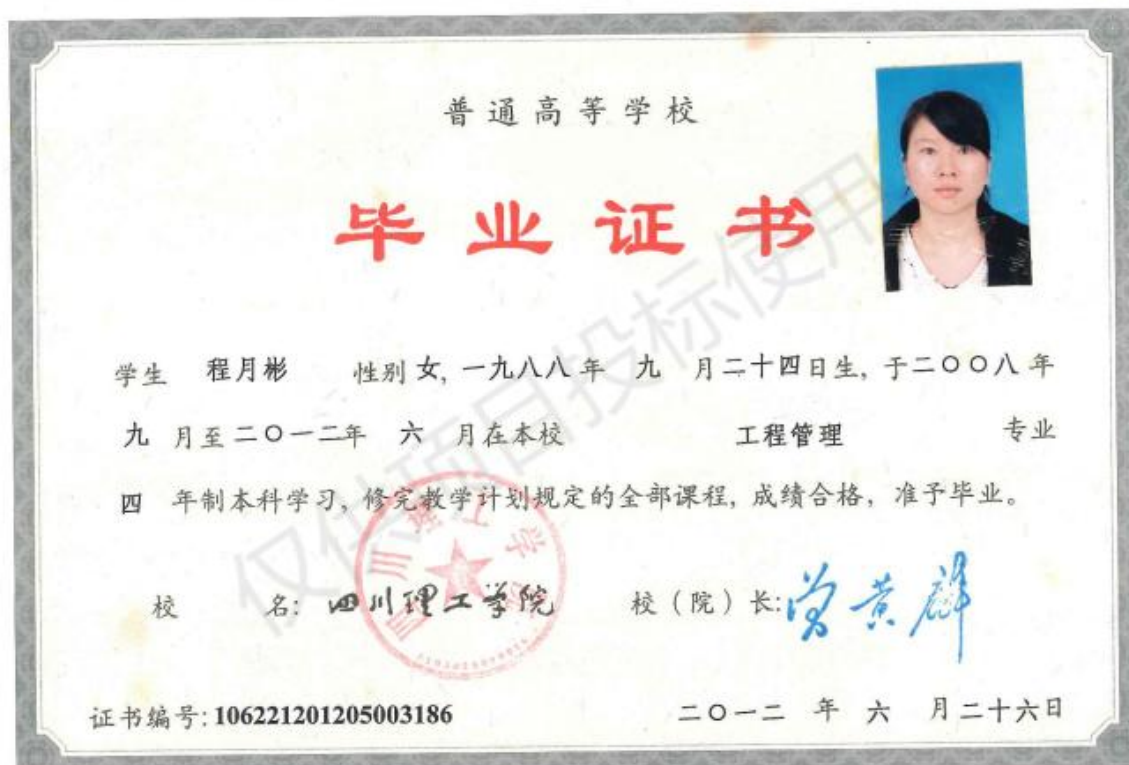 普通高等学校
毕业证书
学生 程月彬 性别 女, 一九八八年 九 月二十四日生, 于二〇〇八年
九 月至二〇一二年 六 月在本校 工程管理 专业
四 年制本科学习, 修完教学计划规定的全部课程, 成绩合格, 准予毕业。
校 名: 四川理工学院 校(院)长: 曾黄麟
证书编号: 106221201205003186 二〇一二 年 六 月二十六日
四川理工学院
仅供项目投标使用